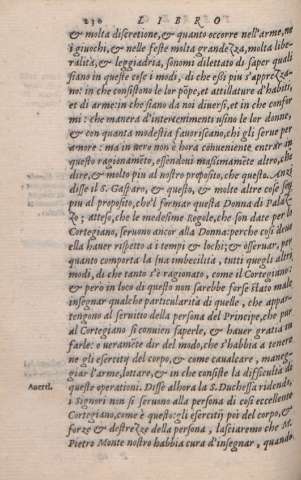 230 LIBRO
& molta discretione, & quanto occorre nell'arme, ne
i giuochi, & nelle feste molta grandezza, molta libe-
ralità, & leggiadria, sonomi dilettato di saper quali
siano in queste cose i modi, di che essi piu s'apprezza-
no: in che consistono le lor põpe, et attillature d'habiti,
et di arme: in che siano da noi diuersi, et in che confor
mi: che manera d'intertenimenti usino le lor donne,
& con quanta modestia fauoriscano, chi gli serue per
amore: ma in uero non è hora conueniente entrar in
questo ragionamẽto, essendoui massimamẽte altro, che
dire, & molto piu al nostro proposito, che questo. Anzi
disse il S. Gasparo, & questo, & molte altre cose son
piu al proposito, che'l formar questa Donna di Palaz
zo; atteso, che le medesime Regole, che son date per lo
Cortegiano, seruono ancor alla Donna: perche cosi deue
ella hauer rispetto a i tempi & lochi; & osseruar, per
quanto comporta la sua imbecilità, tutti quegli altri
modi, di che tanto s'è ragionato, come il Cortegiano:
& però in loco di questo non sarebbe forse stato male
insegnar qualche particularità di quelle, che appar-
tengono al seruitio della persona del Principe, che pur
al Cortegiano si conuien saperle, & hauer gratia in
farle: o ueramẽte dir del modo, che s'habbia a tenere
ne gli esercity del corpo, & come caualcare, maneg-
giar l'arme, lottare, & in che consiste la difficultà di
Auert. queste operationi. Disse alhora la S. Duchessa ridendo,
i Signori non si seruono alla persona di cosi eccellente
Cortegiano, come è questo: gli esercitij poi del corpo, &
forze & destrezze della persona, lasciaremo che M.
Pietro Monte nostro habbia cura d'insegnar, quando